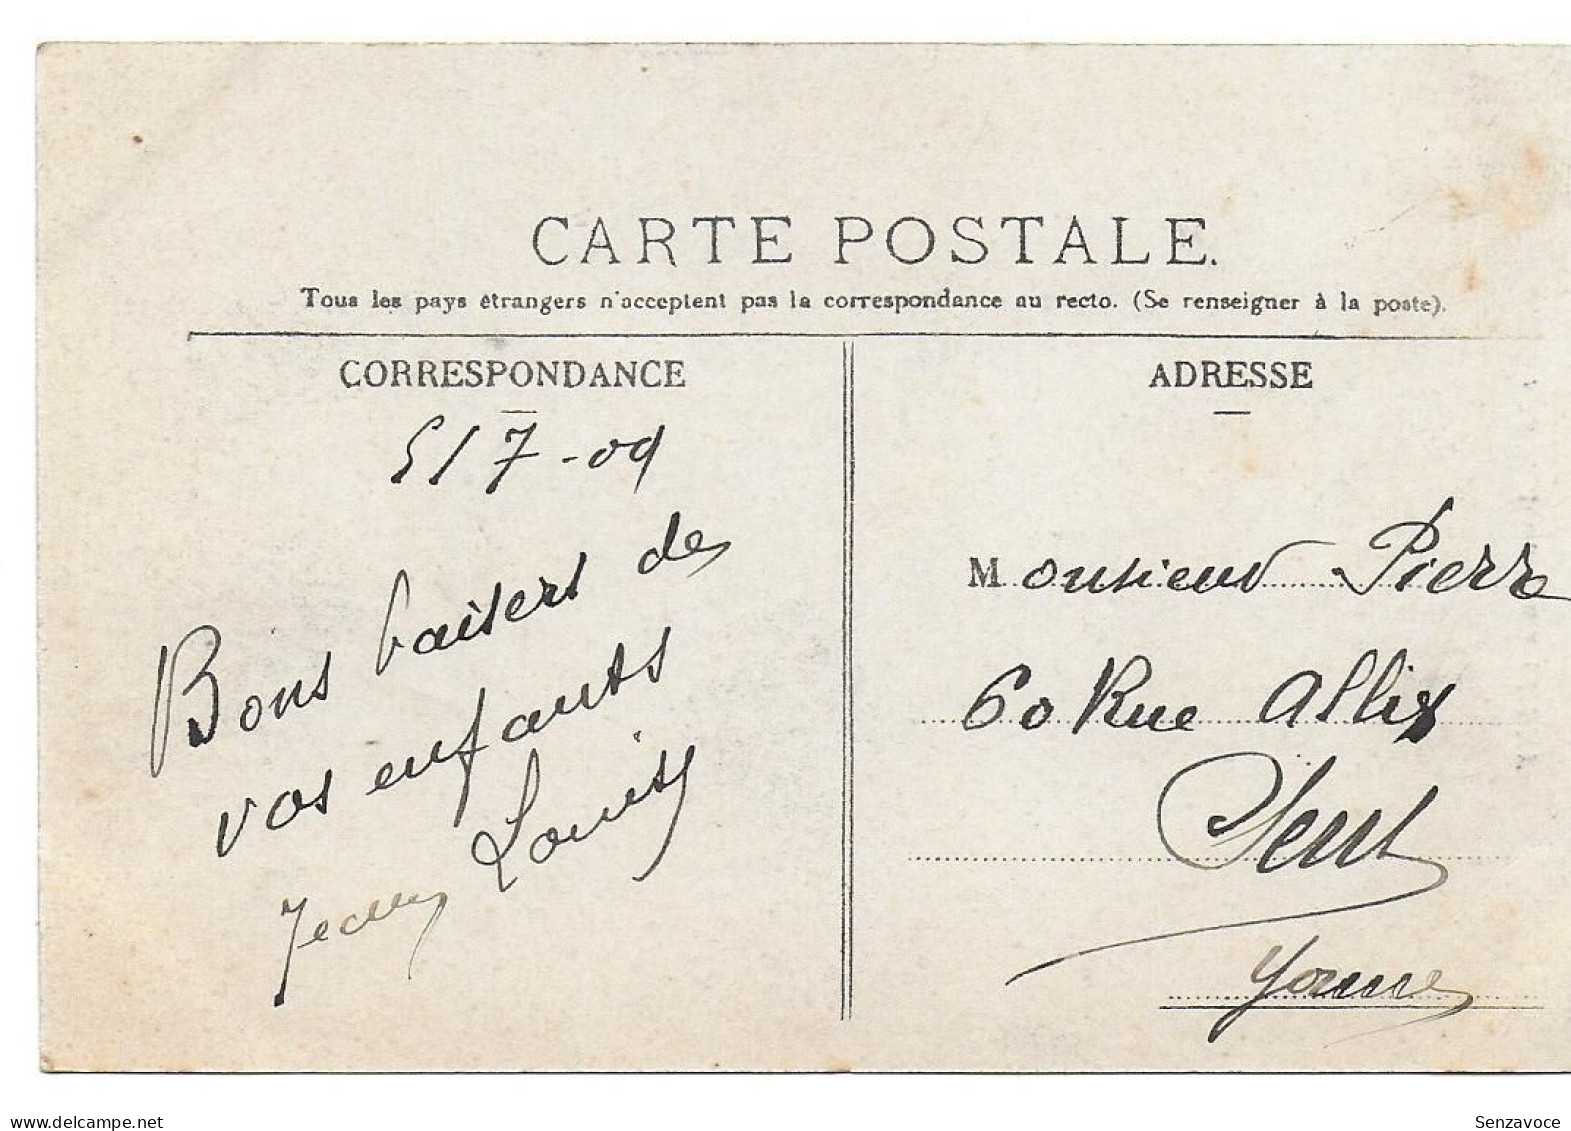 CARTE POSTALE.
Tous les pays étrangers n'acceptent pas la correspondance au recto. (Se renseigner à la poste).
CORRESPONDANCE
5/7-09
Bons baisers de
vos enfants
Jeanne Louis
ADRESSE
Monsieur Pierre
60 Rue Allix
Sens
Yonne
delcampe.net
Senzavoce